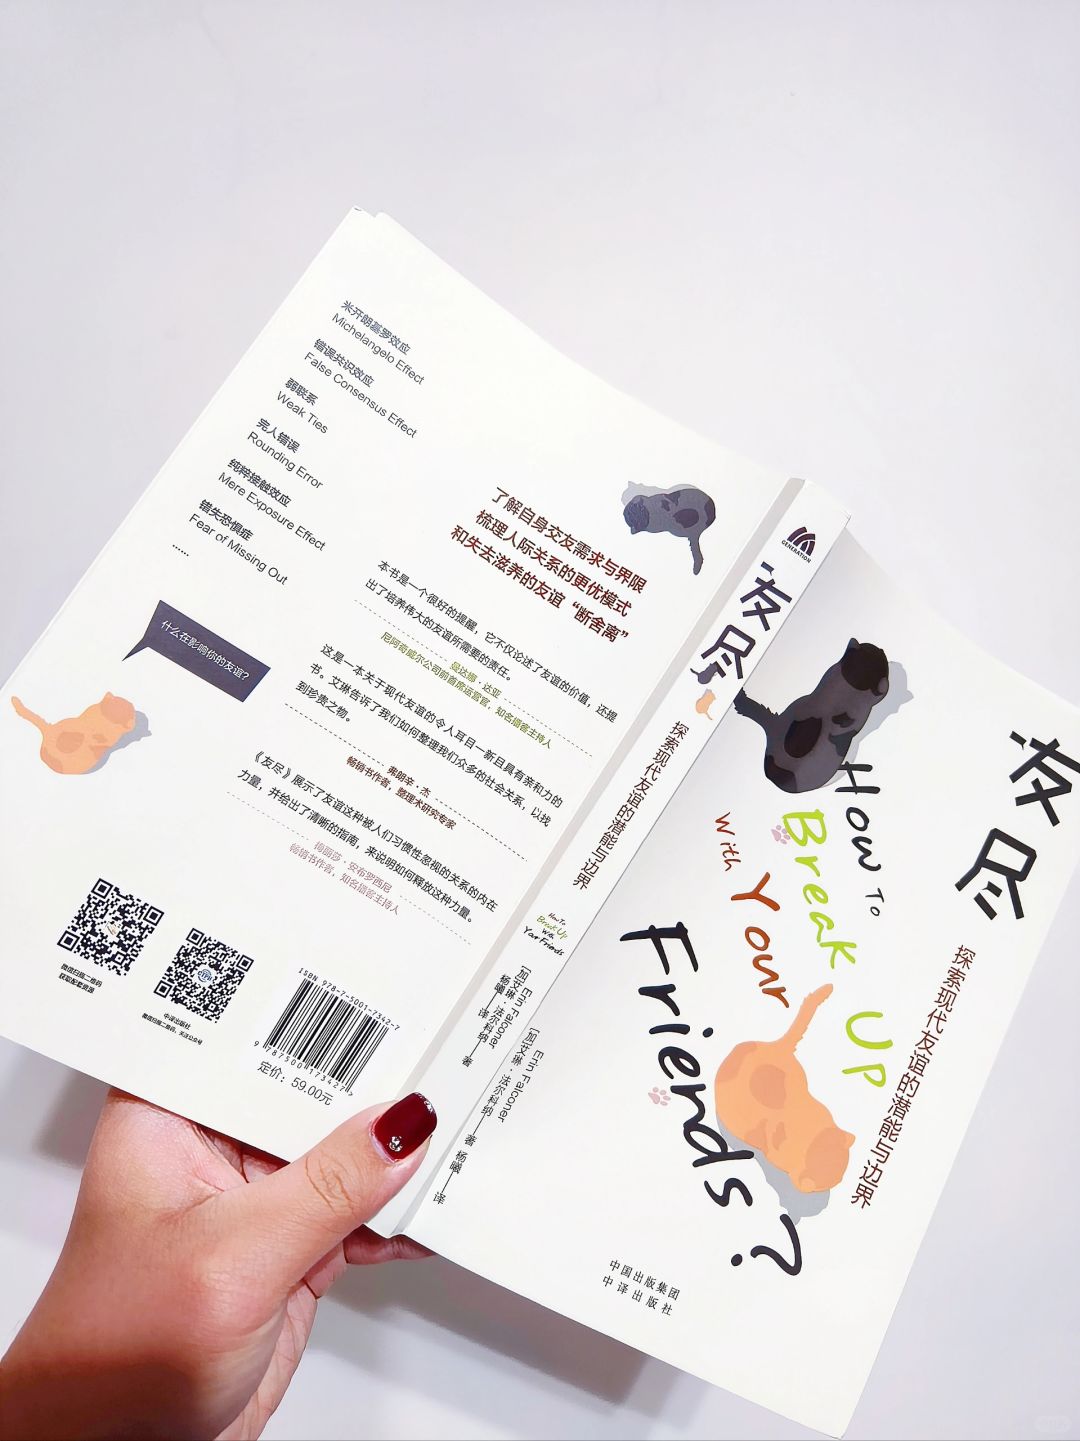 米开朗基罗效应
Michelangelo Effect
错误共识效应
False Consensus Effect
弱联系
Weak Ties
完人错误
Rounding Error
纯粹接触效应
Mere Exposure Effect
错失恐惧症
Fear of Missing Out
……
什么在影响你的友谊？
了解自身交友需求与界限
梳理人际关系的更优模式
和失去滋养的友谊“断舍离”
本书是一个很好的提醒，它不仅论述了友谊的价值，还提
出了培养伟大的友谊所需要的责任。
曼达娜·达亚
尼阿奇威尔公司前首席运营官，知名播客主持人
这是一本关于现代友谊的令人耳目一新且具有亲和力的
书。艾琳告诉了我们如何整理我们众多的社会关系，以找
到珍贵之物。
弗朗辛·杰
畅销书作者，整理术研究专家
《友尽》展示了友谊这种被人们习惯性忽视的关系的内在
力量，并给出了清晰的指南，来说明如何释放这种力量。
梅丽莎·安布罗西尼
畅销书作者，知名播客主持人
微信扫描二维码
获取配套资源
中译出版社
微信扫描二维码，关注公众号
ISBN 978-7-5001-7342-7
9 787500 173427 >
定价：59.00元
GENERATION
友尽
探索现代友谊的潜能与边界
How To
Break Up
With
Your Friends
[加] Erin Falconer
艾琳·法尔科纳 著
杨曦 译
友尽
探索现代友谊的潜能与边界
How To
Break Up
With Your
Friends?
[加] Erin Falconer
艾琳·法尔科纳 著
杨曦 译
中国出版集团
中译出版社